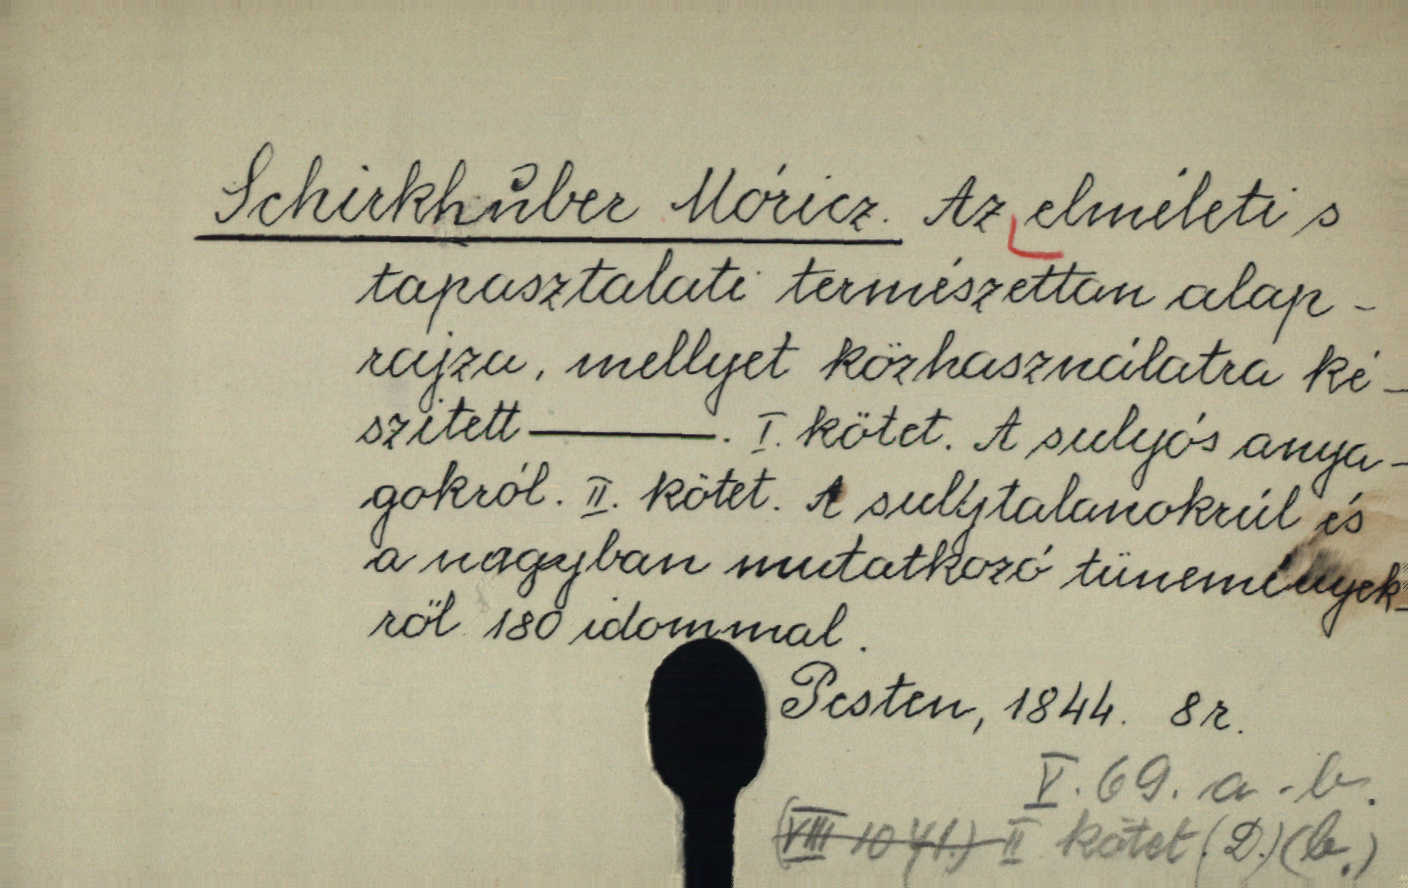 Schirkhuber Móricz. Az elméleti s
tapasztalati természettan alap-
rajza, mellyet közhasználatra ké-
szitett ———. I. kötet. A sulyós anya-
gokról. II. kötet. A sulytalanokrúl és
a nagyban mutatkozó tünemények-
ről 180 idommal.
Pesten, 1844. 8r.
V. 69. a.-b.
(VIII 10 II kötet (D.) (b.)